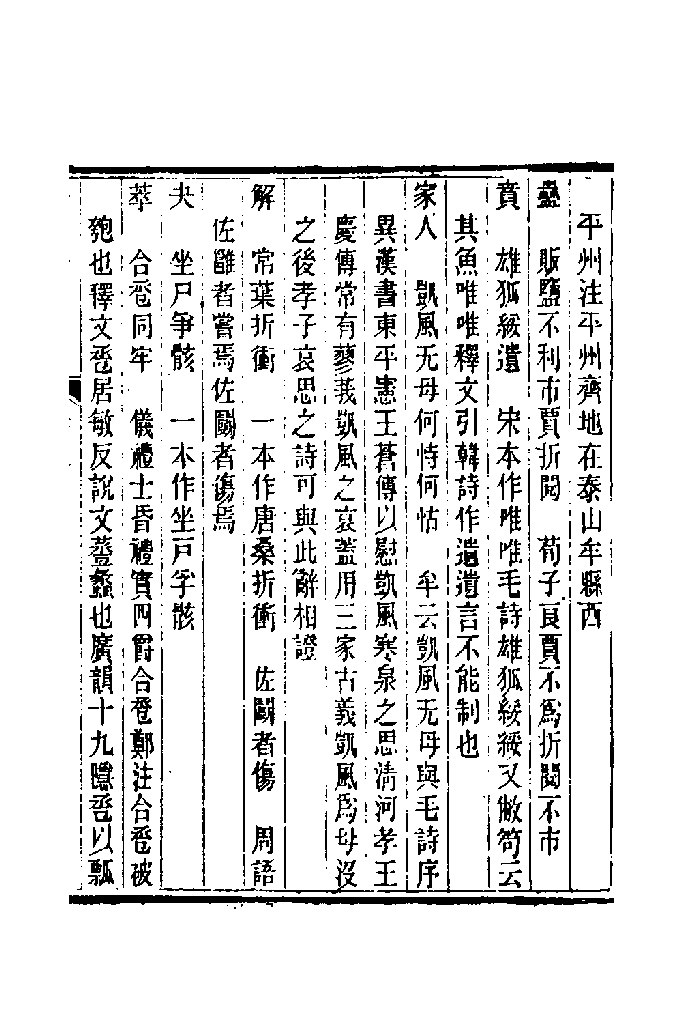 平州注平州齊地在泰山牟縣西
蠱　販鹽不利市賈折閱　荀子良賈不爲折閱不市
賁　雄狐綏遺　宋本作唯唯毛詩雄狐綏綏又敝笱云
其魚唯唯釋文引韓詩作遺遺言不能制也
家人　凱風无母何恃何怙　牟云凱風无母與毛詩序
異漢書東平憲王蒼傳以慰凱風寒泉之思淸河孝王
慶傳常有蓼莪凱風之哀蓋用三家古義凱風爲母没
之後孝子哀思之詩可與此辭相證
解　常葉折衝　一本作唐桑折衝　佐鬭者傷　周語
佐雝者嘗焉佐鬭者傷焉
夬　坐尸爭骸　一本作坐戸字骸
萃　合卺同牢　儀禮士昏禮實四爵合卺鄭注合卺破
匏也釋文卺居敏反說文蓥蠡也廣韻十九隱卺以瓢